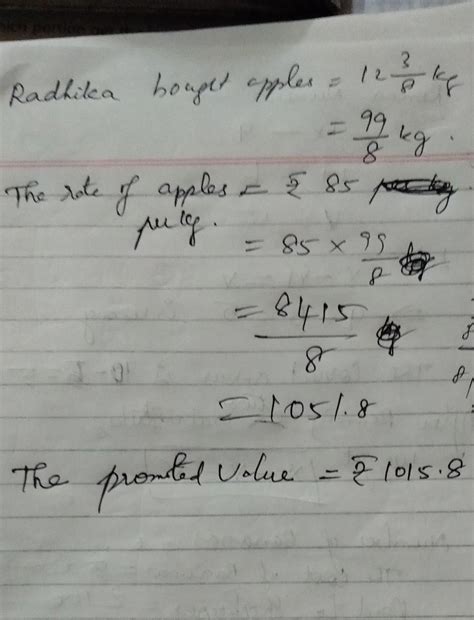 Radhika bought apples = 12 3/8 kg
= 99/8 kg.
The rate of apples = ₹ 85
per kg.
= 85 × 99/8
= 8415/8
= 1051.8
The promoted value = ₹ 1015.8